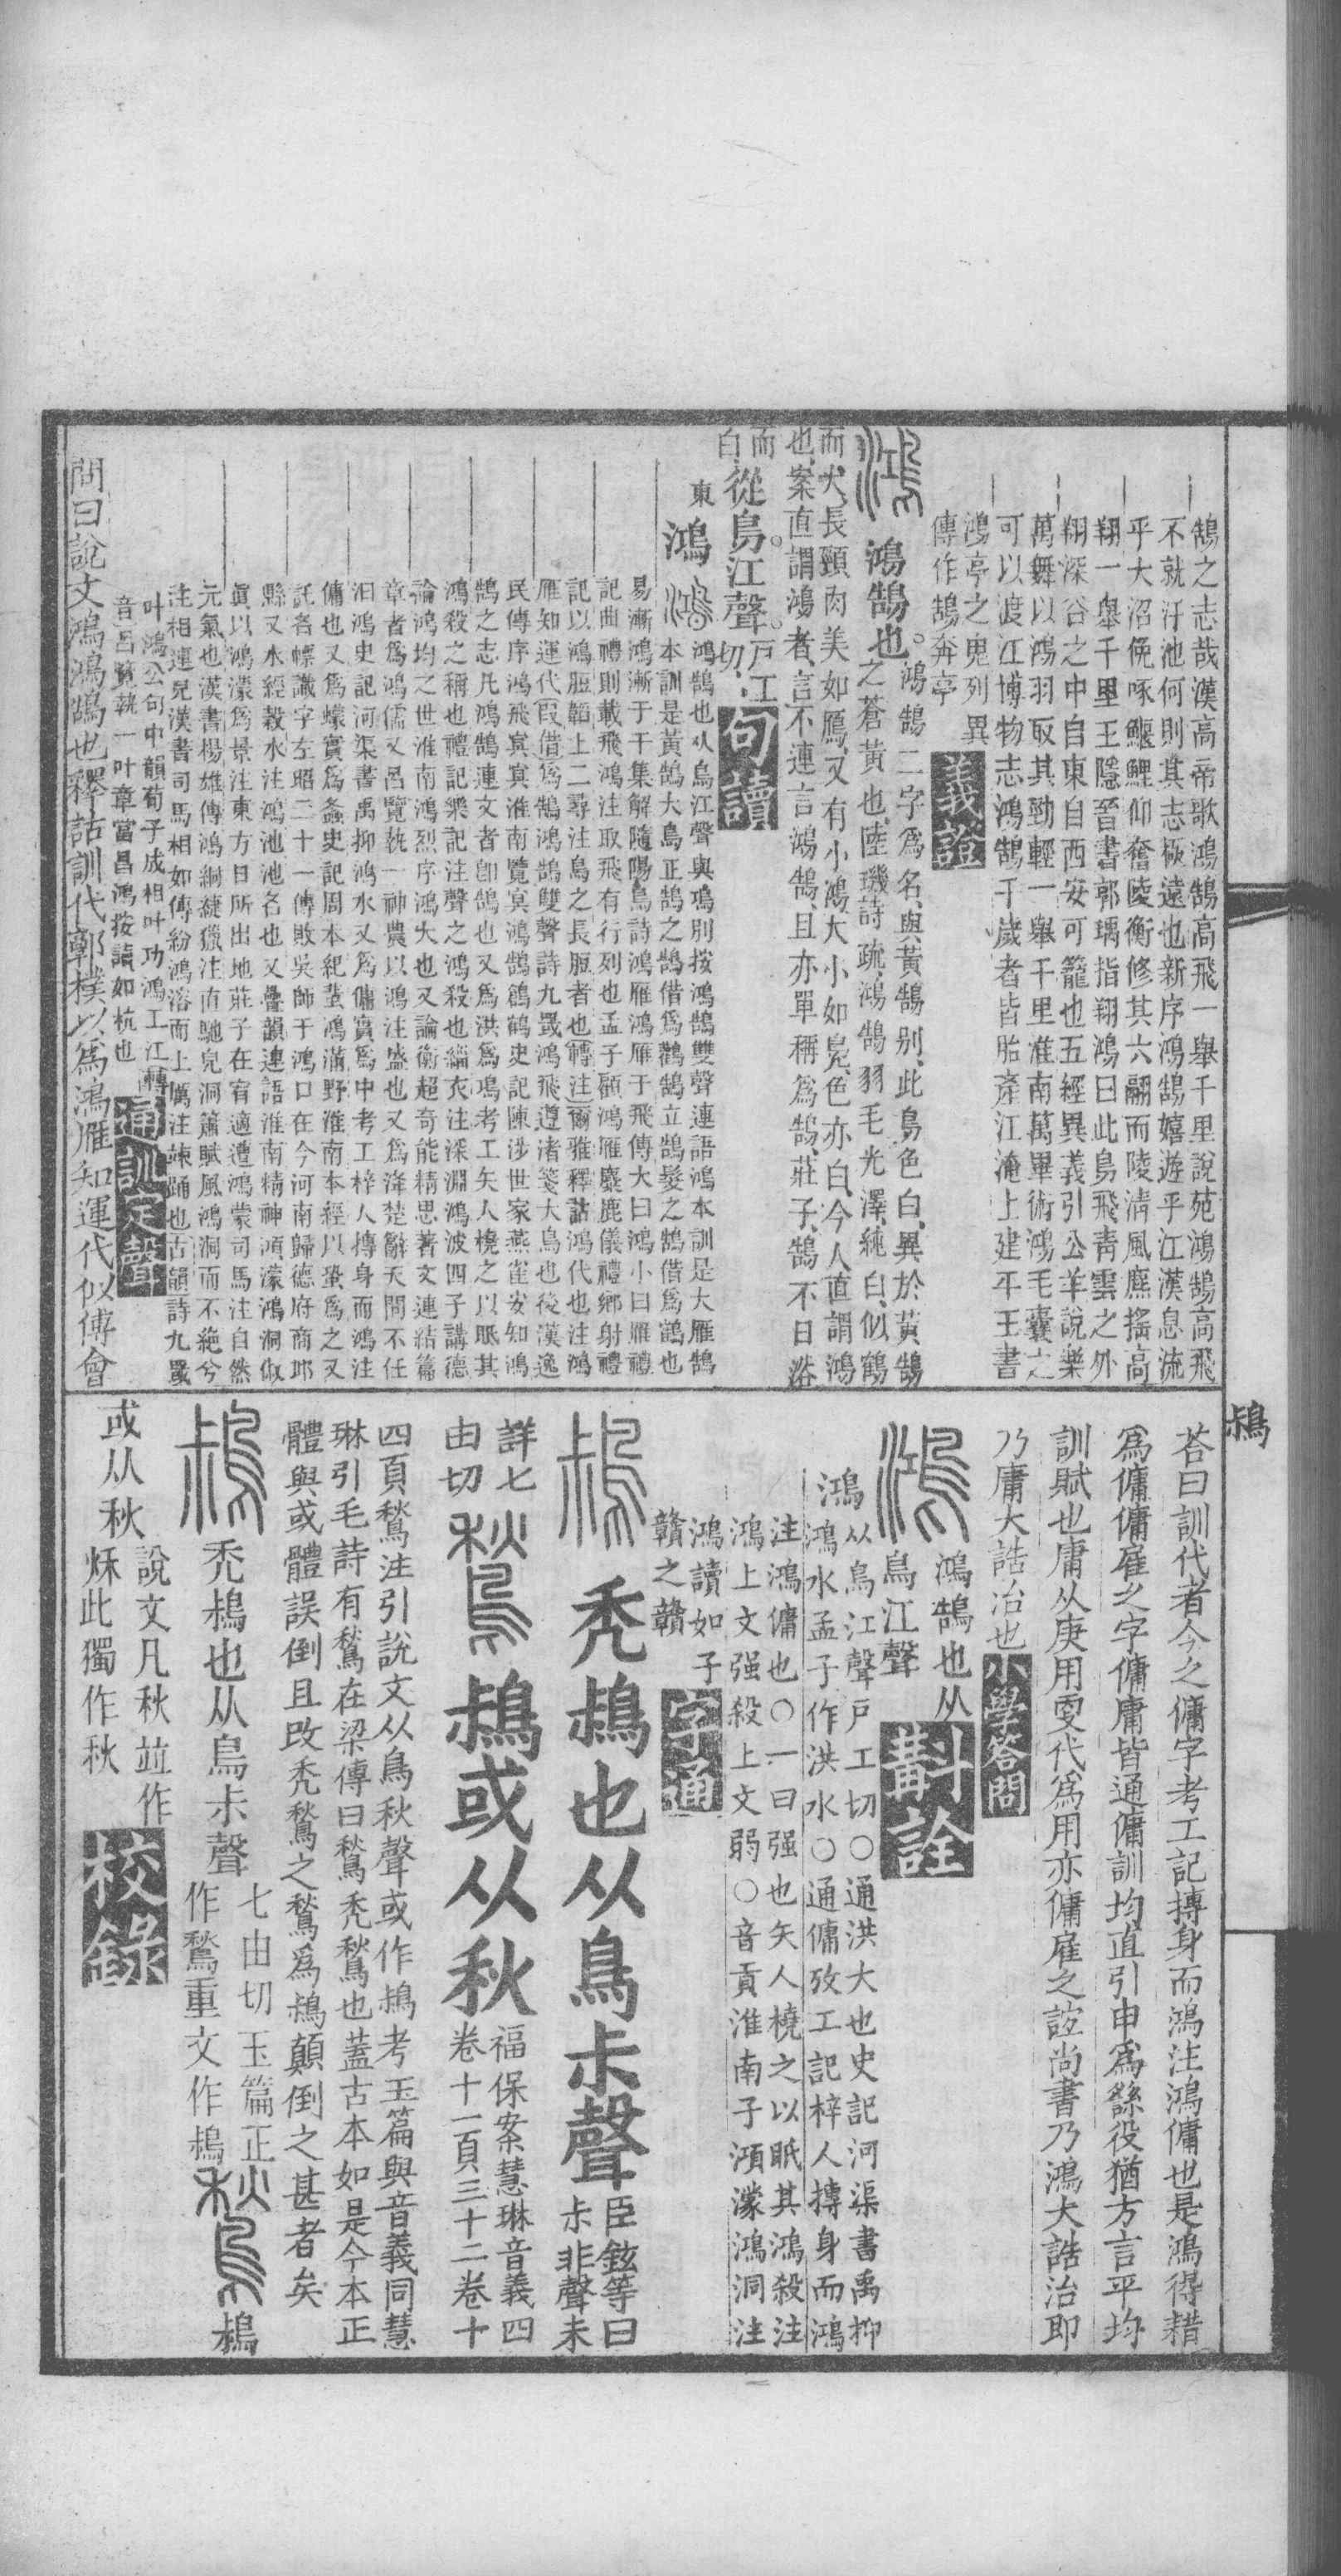 鵠之志哉漢高帝歌鴻鵠高飛一舉千里說苑鴻鵠高飛
不就汙池何則其志極遠也新序鴻鵠嬉遊乎江漢息流
乎大沼俛啄鰋鯉仰奮陵衡修其六翮而陵淸風麃搖高
翔一舉千里王隱晉書郭瑀指翔鴻曰此鳥飛靑雲之外
翔深谷之中自東自西安可籠也五經異義引公羊說樂
萬舞以鴻羽取其勁輕一舉千里淮南萬畢術鴻毛囊之
可以渡江博物志鴻鵠千歲者皆胎產江淹上建平王書
鴻亭之鬼列異
傳作鵠奔亭
義證
鴻鵠也。鴻鵠二字爲名、與黃鵠別、此鳥色白、異於黃鵠
之蒼黃也、陸璣詩疏、鴻鵠羽毛光澤、純白、似鶴
而大、長頸肉美如鴈、又有小鴻、大小如鳧、色亦白、今人直謂鴻
也、案直謂鴻者、言不連言鴻鵠、且亦單稱爲鵠、莊子、鵠不日浴
而
白、從鳥。江聲。戶工
切、句讀
東
鴻 鴻鵠也从鳥江聲與鳿別按鴻鵠雙聲連語鴻本訓是大雁鵠
本訓是黃鵠大鳥正鵠之鵠借爲鸛鵠立鵠髮之鵠借爲鶴也
易漸鴻漸于干集解隨陽鳥詩鴻雁鴻雁于飛傳大曰鴻小曰雁禮
記曲禮則載飛鴻注取飛有行列也孟子顧鴻雁麋鹿儀禮鄉射禮
記以鴻脰韜上二尋注鳥之長脰者也轉注爾雅釋詁鴻代也注鴻
雁知運代叚借爲鵠鴻鵠雙聲詩九罭鴻飛遵渚箋大鳥也後漢逸
民傳序鴻飛冥冥淮南覽冥鴻鵠鶬鶴史記陳涉世家燕雀安知鴻
鵠之志凡鴻鵠連文者卽鵠也又爲洪爲鳿考工矢人橈之以眂其
鴻殺之稱也禮記樂記注聲之鴻殺也緇衣注深淵鴻波四子講德
論鴻均之世淮南鴻烈序鴻大也又論衡超奇能精思著文連結篇
章者爲鴻儒又呂覽執一神農以鴻注盛也又爲洚楚辭天問不任
汩鴻史記河渠書禹抑鴻水又爲傭實爲中考工梓人摶身而鴻注
傭也又爲蠓實爲螽史記周本紀蜚鴻滿野淮南本經以蛩爲之又
託名幖識字左昭二十一傳敗吳師于鴻口在今河南歸德府商邱
縣又水經穀水注鴻池池名也又疊韻連語淮南精神澒濛鴻洞俶
眞以鴻濛爲景注東方日所出地莊子在宥適遭鴻蒙司馬注自然
元氣也漢書揚雄傳鴻絧緁獵注直馳皃洞簫賦風鴻洞而不絶兮
注相連皃漢書司馬相如傳紛鴻溶而上厲注竦踊也古韻詩九罭
叶鴻公句中韻荀子成相叶功鴻工江轉
音呂覽執一叶章當昌鴻按讀如杭也
通訓定聲
問曰說文鴻鴻鵠也釋詁訓代郭樸以爲鴻雁知運代似傅會
荅曰訓代者今之傭字考工記摶身而鴻注鴻傭也是鴻得耤
爲傭傭雇之字傭庸皆通傭訓均直引申爲繇役猶方言平均
訓賦也庸从庚用叓代爲用亦傭雇之誼尚書乃鴻大誥治卽
乃庸大誥治也小學答問
鴻鵠也从
鳥江聲 斠詮
鴻从鳥江聲戶工切〇通洪大也史記河渠書禹抑
鴻水孟子作洪水〇通傭攷工記梓人摶身而鴻
注鴻傭也〇一曰强也矢人橈之以眂其鴻殺注
鴻上文强殺上文弱〇音貢淮南子澒濛鴻洞注
鴻讀如子
贛之贛 字通
禿鵱也从鳥尗聲臣鉉等曰
尗非聲未
詳七
由切
䳺或从秋福保案慧琳音義四
卷十一頁三十二卷十
四頁鶖注引說文从鳥秋聲或作䳺考玉篇與音義同慧
琳引毛詩有鶖在梁傳曰鶖禿鶖也蓋古本如是今本正
體與或體誤倒且改禿鶖之鶖爲䳺顛倒之甚者矣
禿䳺也从鳥尗聲七由切玉篇正
作鶖重文作䳺
䳺
或从秋說文凡秋並作
秌此獨作秋 校錄
䳺